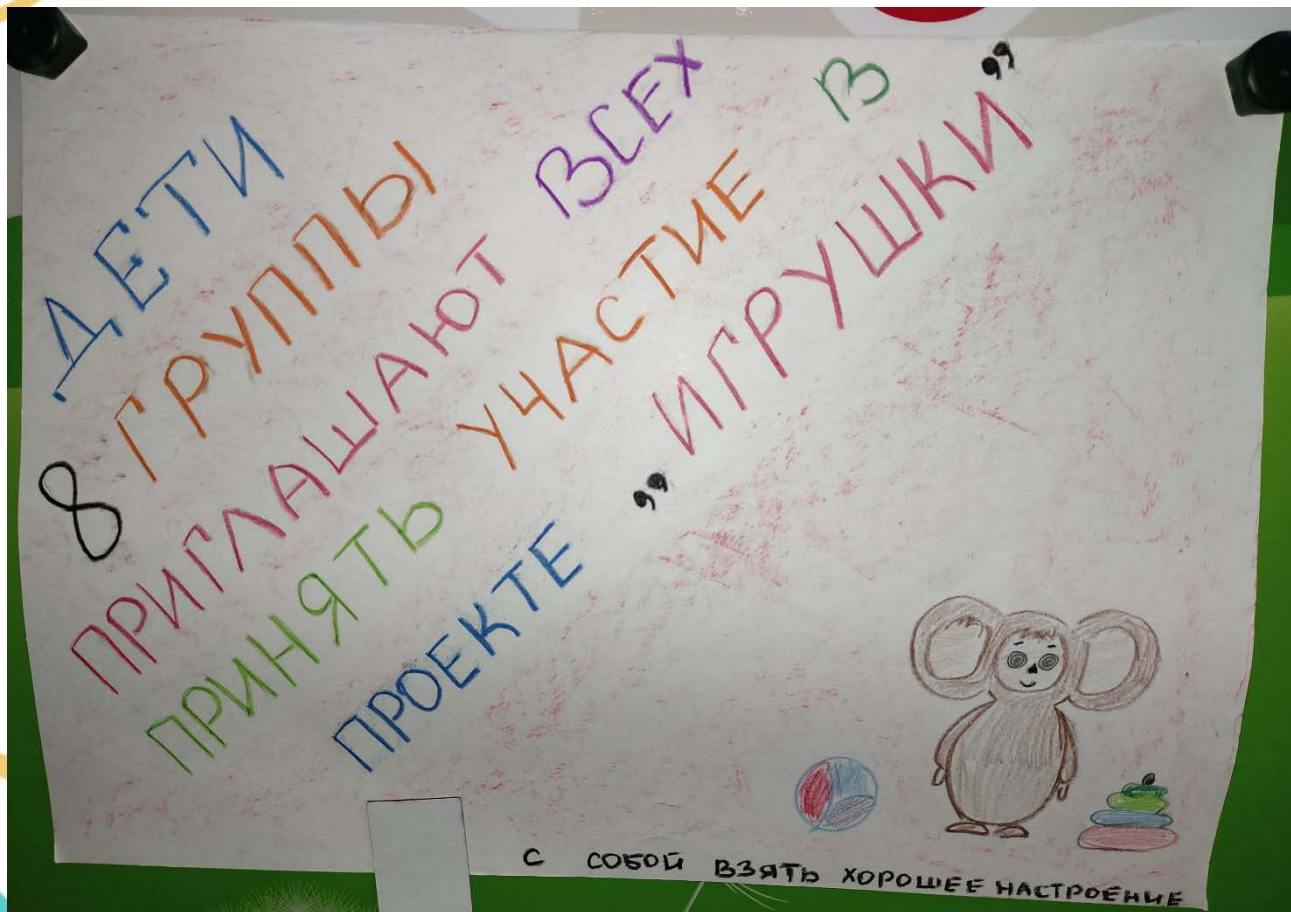 ДЕТИ
8 ГРУППЫ
ПРИГЛАШАЮТ ВСЕХ
ПРИНЯТЬ УЧАСТИЕ В
ПРОЕКТЕ „ИГРУШКИ”
С СОБОЙ ВЗЯТЬ ХОРОШЕЕ НАСТРОЕНИЕ